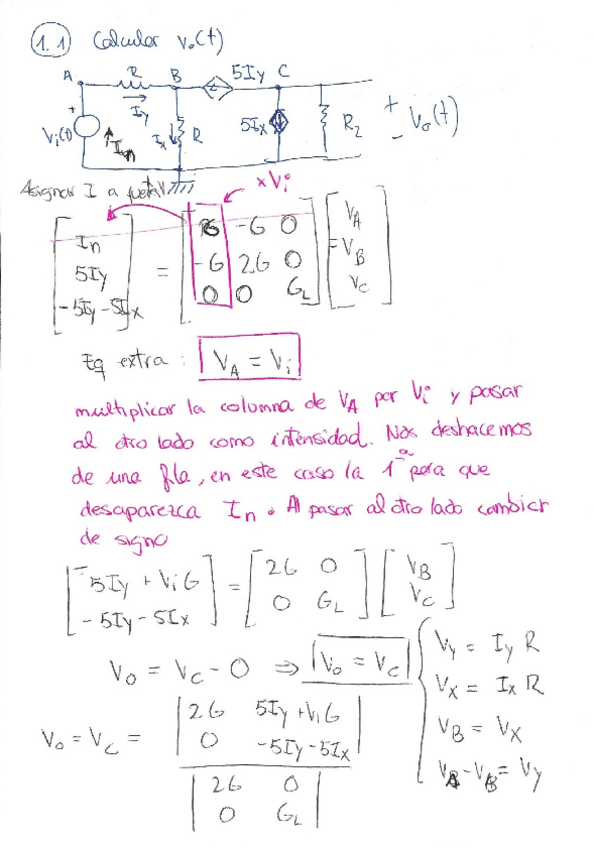 1.1 Calcular v₀(t)
A R B 5Iy C
Iy
+ Vi(t) In Ix R 5Ix R₂ + - V₀(t)
Asignar I a fuente V. xVi
[In 5Iy -5Iy-5Ix] = [G -G 0 -G 2G 0 0 0 GL] [VA VB VC]
Eq extra: VA = Vi
multiplicar la columna de VA por Vi y pasar
al otro lado como intensidad. Nos deshacemos
de una fila, en este caso la 1ª para que
desaparezca In. Al pasar al otro lado cambia
de signo
[5Iy + ViG -5Iy-5Ix] = [2G 0 0 GL] [VB VC]
V₀ = VC - 0 ⇒ V₀ = VC
Vy = Iy R
Vx = Ix R
VB = Vx
VA - VB = Vy
V₀ = VC = |2G 5Iy+ViG 0 -5Iy-5Ix|
|2G 0 0 GL|